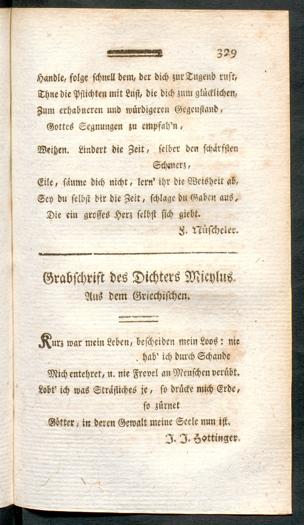 329
Handle, folge schnell dem, der dich zur Tugend ruft,
Thue die Pflichten mit Lust, die dich zum glücklichen,
Zum erhabneren und würdigeren Gegenstand,
Gottes Segnungen zu empfah'n,
Weihen. Lindert die Zeit, selber den schärfsten
Schmerz,
Eile, säume dich nicht, lern' ihr die Weisheit ab,
Sey du selbst dir die Zeit, schlage du Gaben aus,
Die ein grosses Herz selbst sich giebt.
F. Nüscheler.
Grabschrift des Dichters Micylus.
Aus dem Griechischen.
Kurz war mein Leben, bescheiden mein Loos: nie
hab' ich durch Schande
Mich entehret, u. nie Frevel an Menschen verübt.
Lobt' ich was Sträfliches je, so drücke mich Erde,
so zürnet
Götter, in deren Gewalt meine Seele nun ist.
J. J. Hottinger.